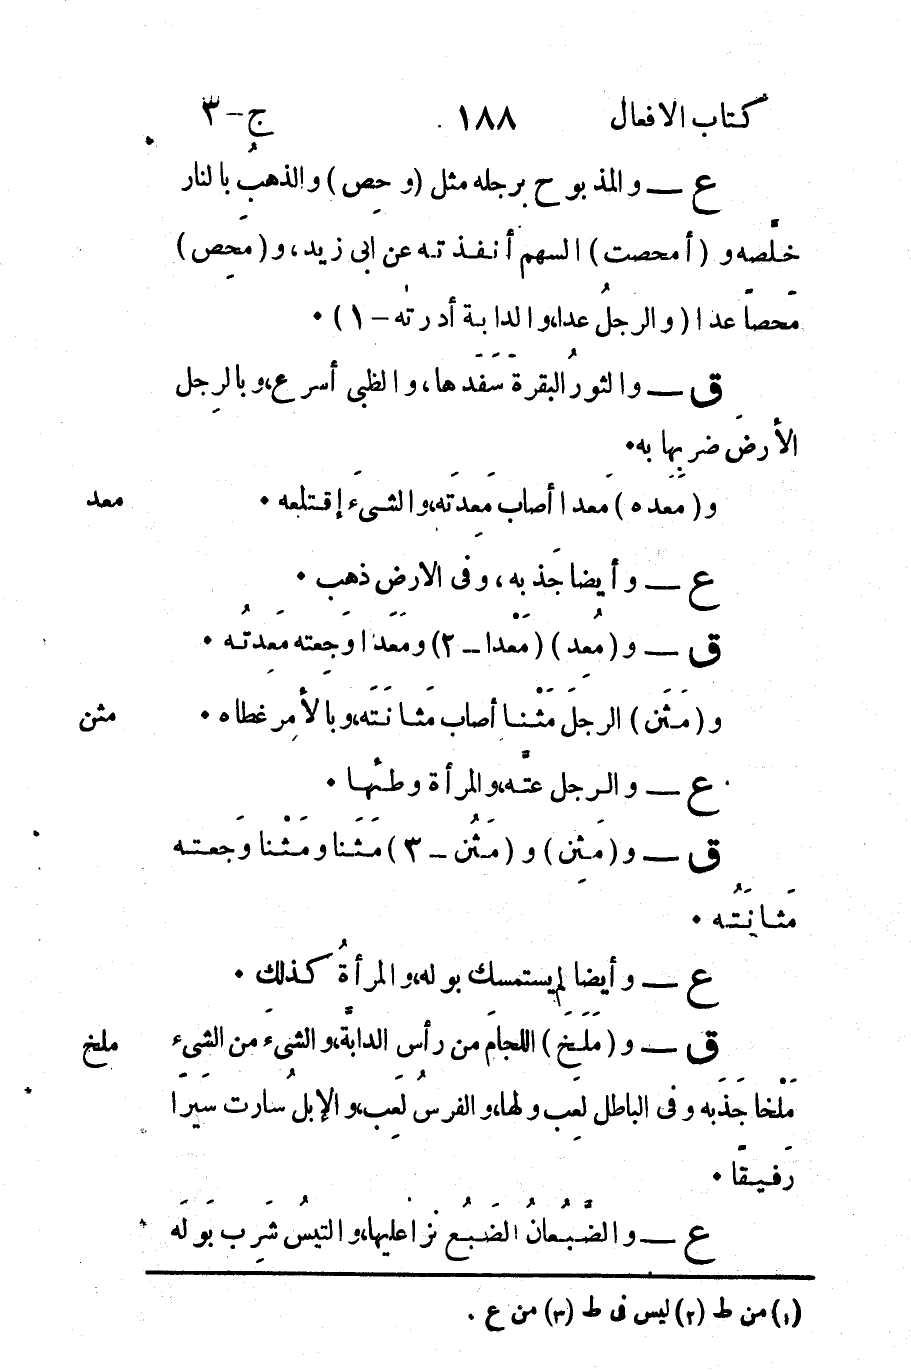 كتاب الافعال ١٨٨ ج-٣
ع — والمذبوح برجله مثل (وحِص) والذهبُ بالنار
خلَّصه و (أمحصت) السهم أنفذته عن ابى زيد، و (محِص)
مَحصاً عدا (والرجلُ عدا، والدابة أدرته - ١) ٠
ق — والثورُ البقرة سَفَدَها، والظبى أسرع، وبالرجِل
الأرضَ ضربها به٠
و (مَعَده) مَعدا أصابَ مَعِدَته، والشىءَ إقتلعه ٠ معد
ع — وأيضا جَذبه، وفى الارض ذهَب ٠
ق — و (مُعِد) (مَعْدا - ٢) ومَعَدا وَجِعته مَعِدتُه ٠
و (مَثَن) الرجلَ مَثْنا أصاب مَثانَتَه، وبالأمر غطاه ٠ مثن
ع — والرجل عتَّه، والمرأة وطئها ٠
ق — و (مَثِن) و (مَثُن - ٣) مَثَنا ومَثْنا وَجعته
مَثانَتُه ٠
ع — وأيضا لم يستمسك بوله، والمرأةُ كذلك ٠
ق — و (مَلَخ) اللجامَ من رأس الدابَّة، والشىءَ من الشىءِ ملخ
مَلْخا جَذَبه وفى الباطل لَعِب ولها، والفرسُ لَعِب، والإبلُ سارت سَيرا
رَفيقًا ٠
ع — والضَّبُعانُ الضَبُع نزا عليها، والتيسُ شَرِب بَولَه
(١) من ط (٢) ليس فى ط (٣) من ع .